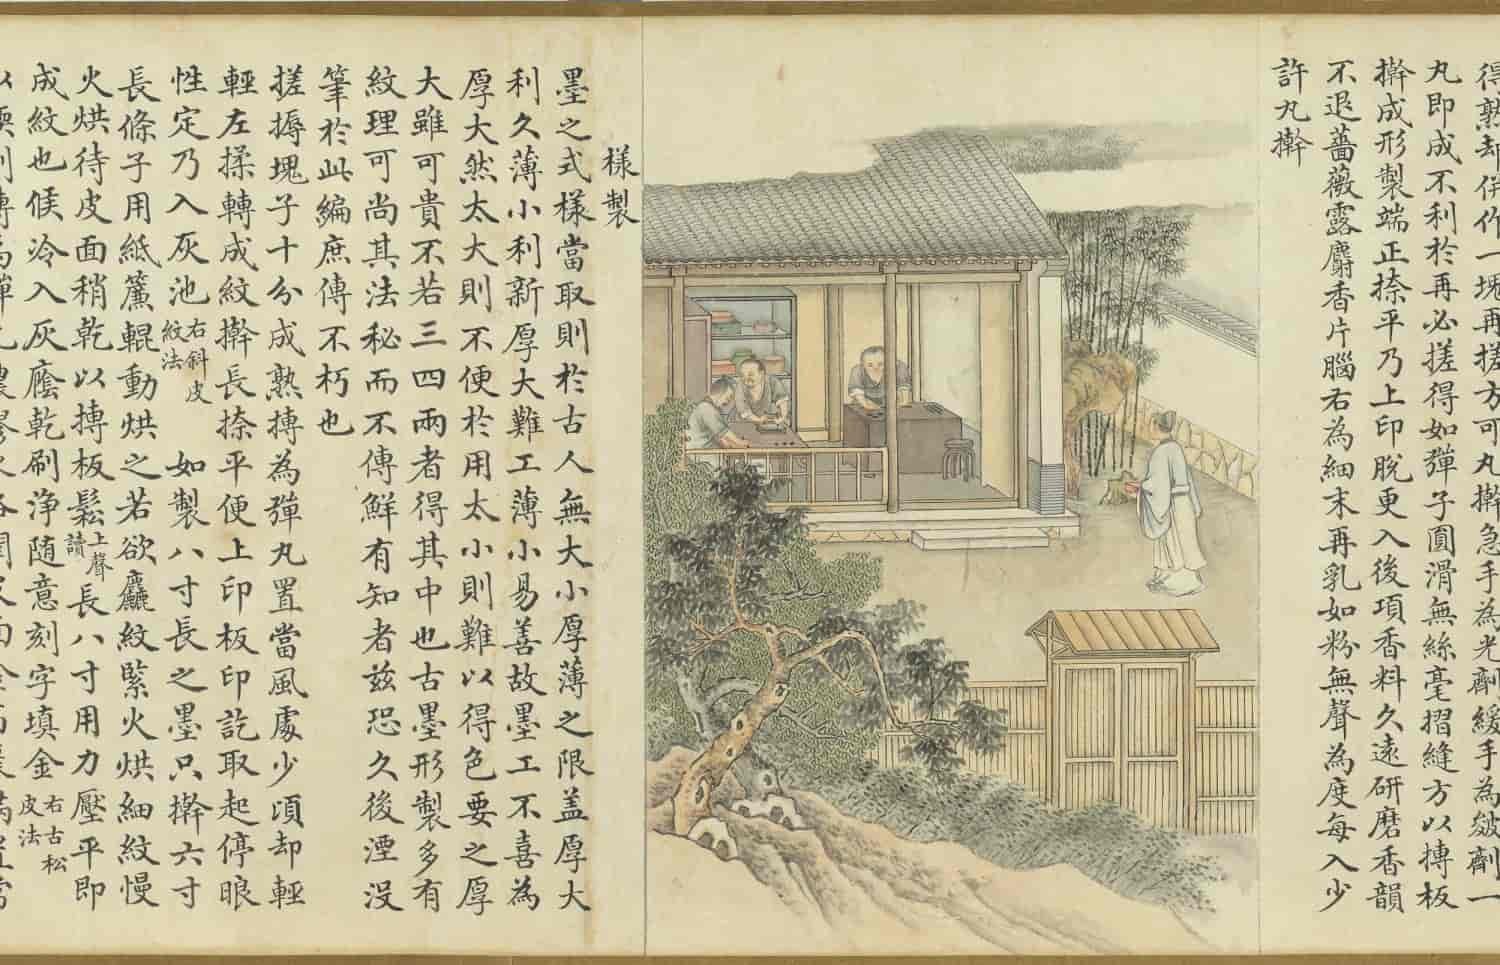 得熟却併作一塊再搓方可丸擀急手為光劑緩手為皴劑一
丸即成不利於再必搓得如彈子圓滑無絲毫摺縫方以摶板
擀成形製端正捺平乃上印脫更入後項香料久遠研磨香韻
不退薔薇露麝香片腦右為細末再乳如粉無聲為度每入少
許丸擀
樣製
墨之式樣當取則於古人無大小厚薄之限盖厚大
利久薄小利新厚大難工薄小易善故墨工不喜為
厚大然太大則不便於用太小則難以得色要之厚
大雖可貴不若三四兩者得其中也古墨形製多有
紋理可尚其法秘而不傳鮮有知者茲恐久後湮没
筆於此編庶傳不朽也
搓搙塊子十分成熟摶為彈丸置當風處少頃却輕
輕左揉轉成紋擀長捺平便上印板印訖取起停眼
性定乃入灰池右斜皮紋法如製八寸長之墨只擀六寸
長條子用紙簾輥動烘之若欲麤紋緊火烘細紋慢
火烘待皮面稍乾以摶板鬆上聲讀長八寸用力壓平即
成紋也候冷入灰廕乾刷浄随意刻字填金右古松皮法